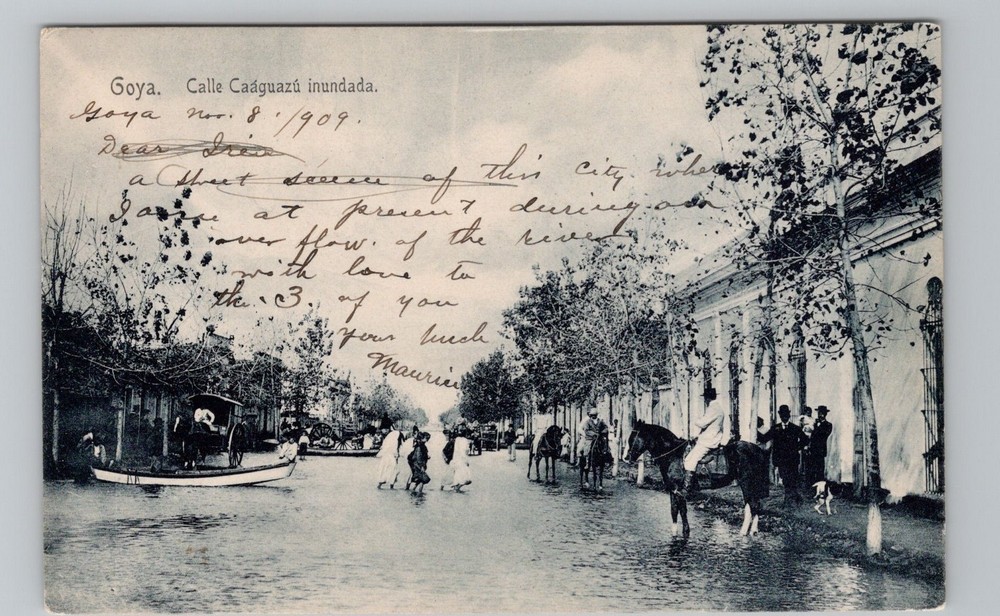 Goya. Calle Caáguazú inundada.
Goya Nov. 8. /909.
Dear Irén
a Street scene of this city. where
I am at present during an
over flow. of the river
with love to
the. 3. of you
your
Maurice